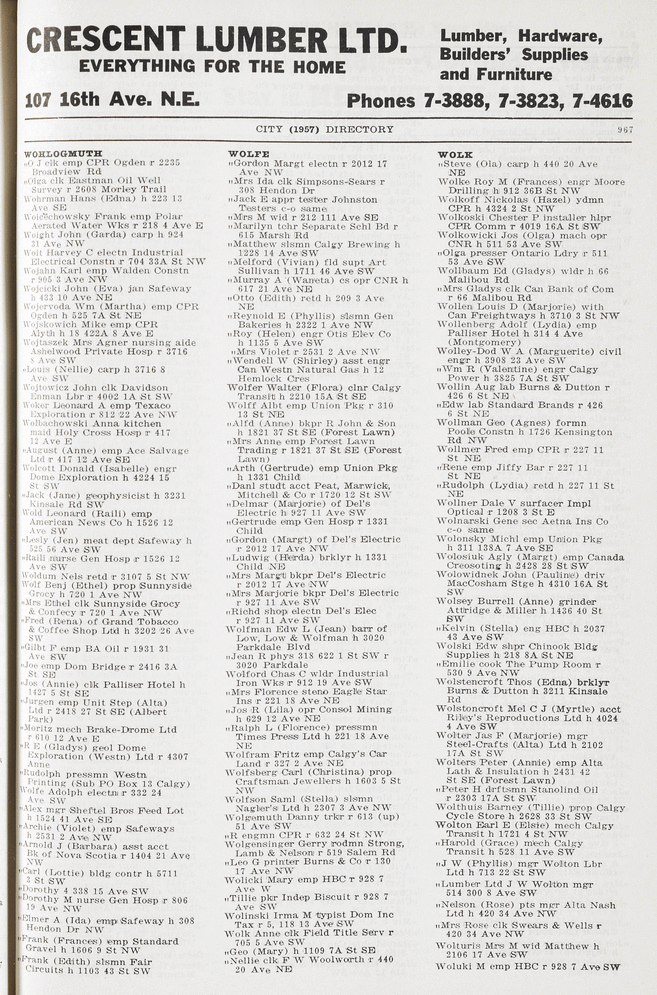 CRESCENT LUMBER LTD.
EVERYTHING FOR THE HOME
107 16th Ave. N.E.
Lumber, Hardware,
Builders' Supplies
and Furniture
Phones 7-3888, 7-3823, 7-4616
CITY (1957) DIRECTORY
967
WOHLOGMUTH
"O J clk emp CPR Ogden r 2235
Broadview Rd
"Olga clk Eastman Oil Well
Survey r 2608 Morley Trail
Wohrman Hans (Edna) h 223 13
Ave SE
Woicechowsky Frank emp Polar
Aerated Water Wks r 218 4 Ave E
Woight John (Garda) carp h 924
31 Ave NW
Woit Harvey C electn Industrial
Electrical Constn r 704 33A St NW
Wojahn Karl emp Walden Constn
r 905 3 Ave NW
Wojcicki John (Eva) jan Safeway
h 433 10 Ave NE
Wojervoda Wm (Martha) emp CPR
Ogden h 525 7A St NE
Wojskowich Mike emp CPR
Alyth h 18 422A 8 Ave E
Wojtaszek Mrs Agner nursing aide
Ashelwood Private Hosp r 3716
8 Ave SW
"Louis (Nellie) carp h 3716 8
Ave SW
Wojtowicz John clk Davidson
Enman Lbr r 4002 1A St SW
Woker Leonard A emp Texaco
Exploration r 812 22 Ave NW
Wolbachowski Anna kitchen
maid Holy Cross Hosp r 417
12 Ave E
"August (Anne) emp Ace Salvage
Ltd r 417 12 Ave SE
Wolcott Donald (Isabelle) engr
Dome Exploration h 4224 15
St SW
"Jack (Jane) geophysicist h 3231
Kinsale Rd SW
Wold Leonard (Raili) emp
American News Co h 1526 12
Ave SW
"Lesly (Jen) meat dept Safeway h
525 56 Ave SW
"Raili nurse Gen Hosp r 1526 12
Ave SW
Woldum Nels retd r 3107 5 St NW
Wolf Benj (Ethel) prop Sunnyside
Grocy h 720 1 Ave NW
"Mrs Ethel clk Sunnyside Grocy
& Confecy r 720 1 Ave NW
"Fred (Rena) of Grand Tobacco
& Coffee Shop Ltd h 3202 26 Ave
SW
"Gilbt F emp BA Oil r 1931 31
Ave SW
"Joe emp Dom Bridge r 2416 3A
St SE
"Jos (Annie) clk Palliser Hotel h
1427 5 St SE
"Jurgen emp Unit Step (Alta)
Ltd r 2418 27 St SE (Albert
Park)
"Moritz mech Brake-Drome Ltd
r 610 12 Ave E
"R E (Gladys) geol Dome
Exploration (Westn) Ltd r 4307
Anne
"Rudolph pressmn Westn
Printing (Sub PO Box 13 Calgy)
Wolfe Adolph electn r 332 24
Ave SW
"Alex mgr Sheftel Bros Feed Lot
h 1524 41 Ave SE
"Archie (Violet) emp Safeways
h 2531 2 Ave NW
"Arnold J (Barbara) asst acct
Bk of Nova Scotia r 1404 21 Ave
NW
"Carl (Lottie) bldg contr h 5711
3 St SW
"Dorothy 4 338 15 Ave SW
"Dorothy M nurse Gen Hosp r 806
19 Ave NW
"Elmer A (Ida) emp Safeway h 308
Hendon Dr NW
"Frank (Frances) emp Standard
Gravel h 1606 9 St NW
"Frank (Edith) slsmn Fair
Circuits h 1103 43 St SW
WOLFE
"Gordon Margt electn r 2012 17
Ave NW
"Mrs Ida clk Simpsons-Sears r
308 Hendon Dr
"Jack E appr tester Johnston
Testers c-o same
"Mrs M wid r 212 111 Ave SE
"Marilyn tchr Separate Schl Bd r
615 Marsh Rd
"Matthew slsmn Calgy Brewing h
1228 14 Ave SW
"Melford (Vivian) fld supt Art
Sullivan h 1711 46 Ave SW
"Murray A (Waneta) cs opr CNR h
617 21 Ave NE
"Otto (Edith) retd h 209 3 Ave
NE
"Reynold E (Phyllis) slsmn Gen
Bakeries h 2322 1 Ave NW
"Roy (Helen) engr Otis Elev Co
h 1135 5 Ave SW
"Mrs Violet r 2531 2 Ave NW
"Wendell W (Shirley) asst engr
Can Westn Natural Gas h 12
Hemlock Cres
Wolfer Walter (Flora) clnr Calgy
Transit h 2210 15A St SE
Wolff Albt emp Union Pkg r 310
13 St NE
"Alfd (Anne) bkpr R John & Son
h 1821 37 St SE (Forest Lawn)
"Mrs Anne emp Forest Lawn
Trading r 1821 37 St SE (Forest
Lawn)
"Arth (Gertrude) emp Union Pkg
h 1331 Child
"Danl studt acct Peat, Marwick,
Mitchell & Co r 1720 12 St SW
"Delmar (Marjorie) of Del's
Electric h 927 11 Ave SW
"Gertrude emp Gen Hosp r 1331
Child
"Gordon (Margt) of Del's Electric
r 2012 17 Ave NW
"Ludwig (Herda) brklyr h 1331
Child NE
"Mrs Margt bkpr Del's Electric
r 2012 17 Ave NW
"Mrs Marjorie bkpr Del's Electric
r 927 11 Ave SW
"Richd shop electn Del's Elec
r 927 11 Ave SW
Wolfman Edw L (Jean) barr of
Low, Low & Wolfman h 3020
Parkdale Blvd
"Jean R phys 318 622 1 St SW r
3020 Parkdale
Wolford Chas C wldr Industrial
Iron Wks r 912 19 Ave SW
"Mrs Florence steno Eagle Star
Ins r 221 18 Ave NW
"Jos R (Lila) opr Consol Mining
h 629 12 Ave NE
"Ralph L (Florence) pressmn
Times Press Ltd h 221 18 Ave
NE
Wolfram Fritz emp Calgy's Car
Land r 327 2 Ave NE
Wolfsberg Carl (Christina) prop
Craftsman Jewellers h 1603 5 St
NW
Wolfson Saml (Stella) slsmn
Nagler's Ltd h 2307 3 Ave NW
Wolgemuth Danny trkr r 613 (up)
51 Ave SW
"R engmn CPR r 632 24 St NW
Wolgensinger Gerry rodmn Strong,
Lamb & Nelson r 519 Salem Rd
"Leo G printer Burns & Co r 130
17 Ave NW
Wolicki Mary emp HBC r 928 7
Ave W
"Tillie pkr Indep Biscuit r 928 7
Ave SW
Wolinski Irma M typist Dom Inc
Tax r 5, 118 13 Ave SW
Wolk Anne clk Field Title Serv r
705 5 Ave SW
"Geo (Mary) h 1109 7A St SE
"Nellie clk F W Woolworth r 440
20 Ave NE
WOLK
"Steve (Ola) carp h 440 20 Ave
NE
Wolke Roy M (Frances) engr Moore
Drilling h 912 36B St NW
Wolkoff Nickolas (Hazel) ydmn
CPR h 4324 2 St NW
Wolkoski Chester P installer hlpr
CPR Comm r 4019 16A St SW
Wolkowicki Jos (Olga) mach opr
CNR h 511 53 Ave SW
"Olga presser Ontario Ldry r 511
53 Ave SW
Wollbaum Ed (Gladys) wldr h 66
Malibou Rd
"Mrs Gladys clk Can Bank of Com
r 66 Malibou Rd
Wollen Louis D (Marjorie) with
Can Freightways h 3710 3 St NW
Wollenberg Adolf (Lydia) emp
Palliser Hotel h 314 4 Ave
(Montgomery)
Wolley-Dod W A (Marguerite) civil
engr h 3908 23 Ave SW
"Wm R (Valentine) engr Calgy
Power h 3825 7A St SW
Wollin Aug lab Burns & Dutton r
426 6 St NE
"Edw lab Standard Brands r 426
6 St NE
Wollman Geo (Agnes) formn
Poole Constn h 1726 Kensington
Rd NW
Wollmer Fred emp CPR r 227 11
St NE
"Rene emp Jiffy Bar r 227 11
St NE
"Rudolph (Lydia) retd h 227 11 St
NE
Wollner Dale V surfacer Impl
Optical r 1208 3 St E
Wolnarski Gene sec Aetna Ins Co
c-o same
Wolonsky Michl emp Union Pkg
h 311 138A 7 Ave SE
Wolosiuk Agly (Margt) emp Canada
Creosoting h 2428 28 St SW
Wolowidnek John (Pauline) driv
MacCosham Stge h 4310 16A St
SW
Wolsey Burrell (Anne) grinder
Attridge & Miller h 1436 40 St
SW
"Kelvin (Stella) eng HBC h 2037
43 Ave SW
Wolski Edw shpr Chinook Bldg
Supplies h 218 8A St NE
"Emilie cook The Pump Room r
530 9 Ave NW
Wolstencroft Thos (Edna) brklyr
Burns & Dutton h 3211 Kinsale
Rd
Wolstoncroft Mel C J (Myrtle) acct
Riley's Reproductions Ltd h 4024
4 Ave SW
Wolter Jas F (Marjorie) mgr
Steel-Crafts (Alta) Ltd h 2102
17A St SW
Wolters Peter (Annie) emp Alta
Lath & Insulation h 2431 42
St SE (Forest Lawn)
"Peter H drftsmn Stanolind Oil
r 2303 17A St SW
Wolthuis Barney (Tillie) prop Calgy
Cycle Store h 2628 33 St SW
Wolton Earl E (Elsie) mech Calgy
Transit h 1721 4 St NW
"Harold (Grace) mech Calgy
Transit h 528 11 Ave SW
"J W (Phyllis) mgr Wolton Lbr
Ltd h 713 22 St SW
"Lumber Ltd J W Wolton mgr
514 300 8 Ave SW
"Nelson (Rose) pts mgr Alta Nash
Ltd h 420 34 Ave NW
"Mrs Rose clk Swears & Wells r
420 34 Ave NW
Wolturis Mrs M wid Matthew h
2106 17 Ave SW
Woluki M emp HBC r 928 7 Ave SW